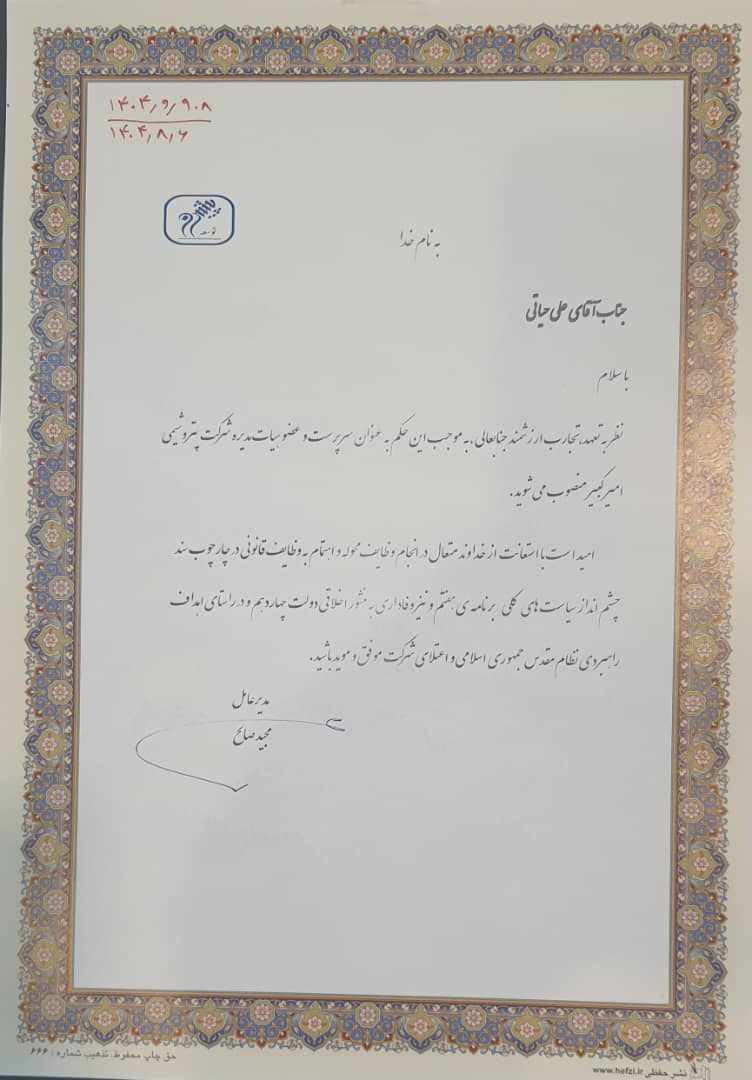 ۱۴۰۴/۹/۹۰۸
۱۴۰۴/۸/۶
پیشرو
توسعه
به نام خدا
جناب آقای علی حیاتی
با سلام
نظر به تعهد، تجارب ارزشمند جنابعالی، به موجب این حکم به عنوان سرپرست و عضو هیات مدیره شرکت پتروشیمی
امیرکبیر منصوب می شوید.
امید است با استعانت از خداوند متعال در انجام وظایف محوله و اهتمام به وظایف قانونی در چارچوب سند
چشم انداز سیاست های کلی برنامه ی هفتم و نیز وفاداری به منشور اخلاقی دولت چهاردهم و در راستای اهداف
راهبردی نظام مقدس جمهوری اسلامی و اعتلای شرکت موفق و موید باشید.
مدیرعامل
مجید صالح
حق چاپ محفوظ. تذهیب شماره : ۶۶۶
نشر حفظی www.hefzi.ir